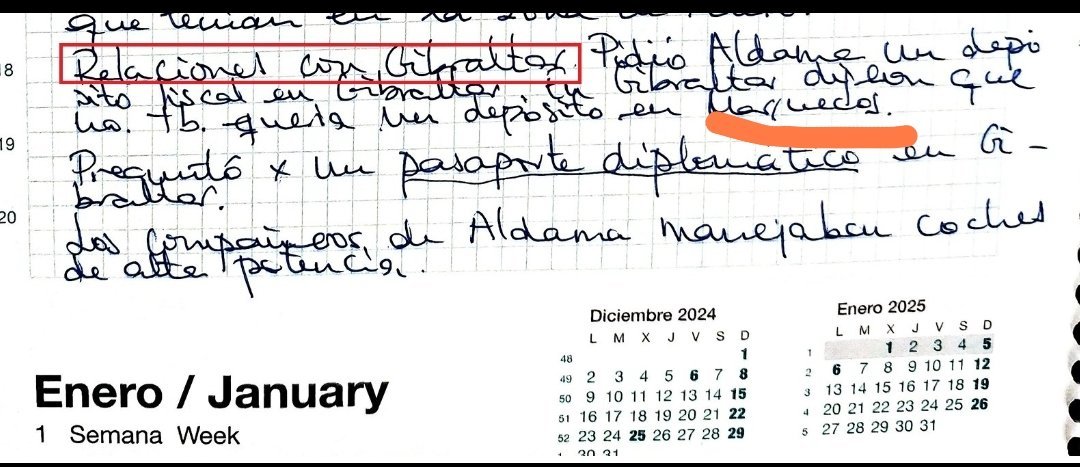 que tenían en la zona de
18
Relaciones con Gibraltar. Pidió Aldama un depó
sito fiscal en Gibraltar En Gibraltar dijeron que
no. tb. quería un depósito en Marruecos.
19
Preguntó x un pasaporte diplomático en Gi-
braltar.
20
Los compañeros de Aldama manejaban coches
de alta potencia.
Diciembre 2024
L M X J V S D
48 1
49 2 3 4 5 6 7 8
50 9 10 11 12 13 14 15
51 16 17 18 19 20 21 22
52 23 24 25 26 27 28 29
1 30 31
Enero 2025
L M X J V S D
1 1 2 3 4 5
2 6 7 8 9 10 11 12
3 13 14 15 16 17 18 19
4 20 21 22 23 24 25 26
5 27 28 29 30 31
Enero / January
1 Semana Week